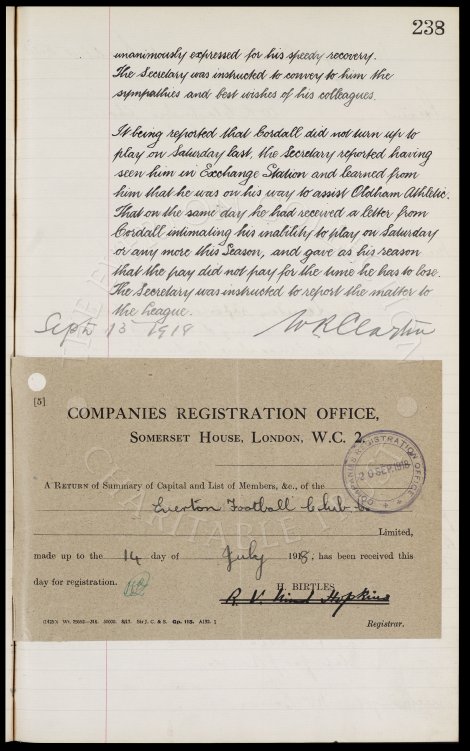 238
unanimously expressed for his speedy recovery.
The Secretary was instructed to convey to him the
sympathies and best wishes of his colleagues.
It being reported that Cordall did not turn up to
play on Saturday last, the Secretary reported having
seen him in Exchange Station and learned from
him that he was on his way to assist Oldham Athletic.
That on the same day he had received a letter from
Cordall intimating his inability to play on Saturday
or any more this Season, and gave as his reason
that the pay did not pay for the time he has to lose.
The Secretary was instructed to report the matter to
the League.
Sept 13 1918 W R Clayton
[5]
COMPANIES REGISTRATION OFFICE,
SOMERSET HOUSE, LONDON, W.C. 2.
COMPANIES REGISTRATION OFFICE
20 SEP 1918
A RETURN of Summary of Capital and List of Members, &c., of the
Everton Football Club Co
Limited,
made up to the 14 day of July 1918, has been received this
day for registration.
H. BIRTLES
Registrar.